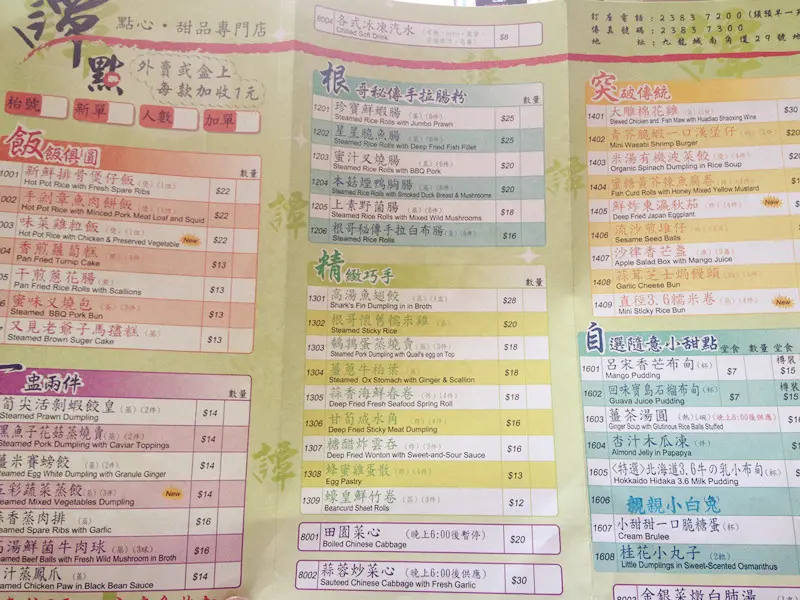 譚點
點心·甜品專門店
外賣或盒上
每款加收1元
枱號
新單
人數
加單
8004 各式冰凍汽水
Chilled Soft Drink
$8
訂座電話:2383 7200
傳真號碼:2383 7300
地址:九龍城南角道29號地
飯飯俱圓
數量
1001 新鮮排骨煲仔飯
Hot Pot Rice with Fresh Spare Ribs
$22
Hot Pot Rice with Minced Pork Meat Loaf and Squid
$22
味菜雞粒飯
Hot Pot Rice with Chicken & Preserved Vegetable
New
$22
香煎蘿蔔糕
Pan Fried Turnip Cake
$13
干煎蔥花腸
Pan Fried Rice Rolls with Scallions
$13
蜜味叉燒包
Steamed BBQ Pork Bun
$13
又見老爺子馬擂糕
Steamed Brown Suger Cake
$13
一盅兩件
數量
筍尖活剝蝦餃皇 (蒸) (2件)
Steamed Prawn Dumpling
$14
黑魚子花菇蒸燒賣
Steamed Pork Dumpling with Caviar Toppings
$14
薑米賽螃餃
Steamed Egg White Dumpling with Granule Ginger
$14
五彩蔬菜蒸餃
Steamed Mixed Vegetables Dumpling
New
$14
蒜香蒸肉排
Steamed Spare Ribs with Garlic
$16
高湯鮮菌牛肉球
Steamed Beef Balls with Fresh Wild Mushroom in Broth
$16
汁蒸鳳爪
Steamed Chicken Paw in Black Bean Sauce
$14
根哥秘傳手拉腸粉
數量
1201 珍寶鮮蝦腸
Steamed Rice Rolls with Jumbo Prawn
$25
1202 星星脆魚腸
Steamed Rice Rolls with Deep Fried Fish Fillet
$25
1203 蜜汁叉燒腸
Steamed Rice Rolls with BBQ Pork
$20
1204 本菇煙鴨胸腸
Steamed Rice Rolls with Smoked Duck Breast & Mushrooms
$20
1205 上素野菌腸
Steamed Rice Rolls with Mixed Wild Mushrooms
$18
1206 根哥秘傳手拉白布腸
Steamed Rice Rolls
$16
精緻巧手
數量
1301 高湯魚翅餃
Shark's Fin Dumpling in in Broth
$28
1302 根哥懷舊糯米雞
Steamed Sticky Rice
$20
1303 鵪鶉蛋蒸燒賣
Steamed Pork Dumpling with Quail's egg on Top
$18
1304 薑蔥牛柏葉
Steamed Ox Stomach with Ginger & Scallion
$18
1305 蒜香海鮮春卷
Deep Fried Fresh Seafood Spring Roll
$18
1306 甘筍咸水角
Deep Fried Sticky Meat Dumpling
$16
1307 糖醋炸雲吞
Deep Fried Wonton with Sweet-and-Sour Sauce
$16
1308 蜂蜜雞蛋散
Egg Pastry
$13
1309 蠔皇鮮竹卷
Beancurd Sheet Rolls
$12
8001 田園菜心 (晚上6:00後暫停)
Boiled Chinese Cabbage
$20
8002 蒜蓉炒菜心 (晚上6:00後供應)
Sauteed Chinese Cabbage with Fresh Garlic
$30
突破傳統
數量
1401 大雕棉花雞
Stewed Chicken and Fish Maw with Huadiao Shaoxing Wine
$30
1402 青芥脆蝦一口漢堡仔
Mini Wasabi Shrimp Burger
$20
1403 米湯有機波菜餃
Organic Spinach Dumpling in Rice Soup
$20
1404 蜜糖黃芥辣魚腐卷
Fish Curd Rolls with Honey Mixed Yellow Mustard
1405 鮮炸東瀛秋茄
Deep Fried Japan Eggplant
New
1406 流沙煎堆仔
Sesame Seed Balls
1407 沙律香芒盞
Apple Salad Box with Mango Juice
1408 蒜茸芝士焗饅頭
Garlic Cheese Bun
1409 直徑3.6糯米卷
Mini Sticky Rice Bun
New
自選隨意小甜點
堂食 數量 堂食
1601 呂宋香芒布甸(杯)
Mango Pudding
$7
樽裝
$15
1602 回味寶島石榴布甸(杯)
Guava Juice Pudding
$7
樽裝
$15
1603 薑茶湯圓 (熱)(碗)(晚上6:00後供應)
Ginger Soup with Glutinous Rice Balls Stuffed
1604 杏汁木瓜凍
Almond Jelly in Papapya
1605 <特選>北海道3.6牛の乳小布甸(杯)
Hokkaido Hidaka 3.6 Milk Pudding
1606 親親小白兔
1607 小甜甜一口脆糖蛋(杯)
Cream Brulee
1608 桂花小丸子
Little Dumplings in Sweet-Scented Osmanthus
金銀菜燉白肺湯